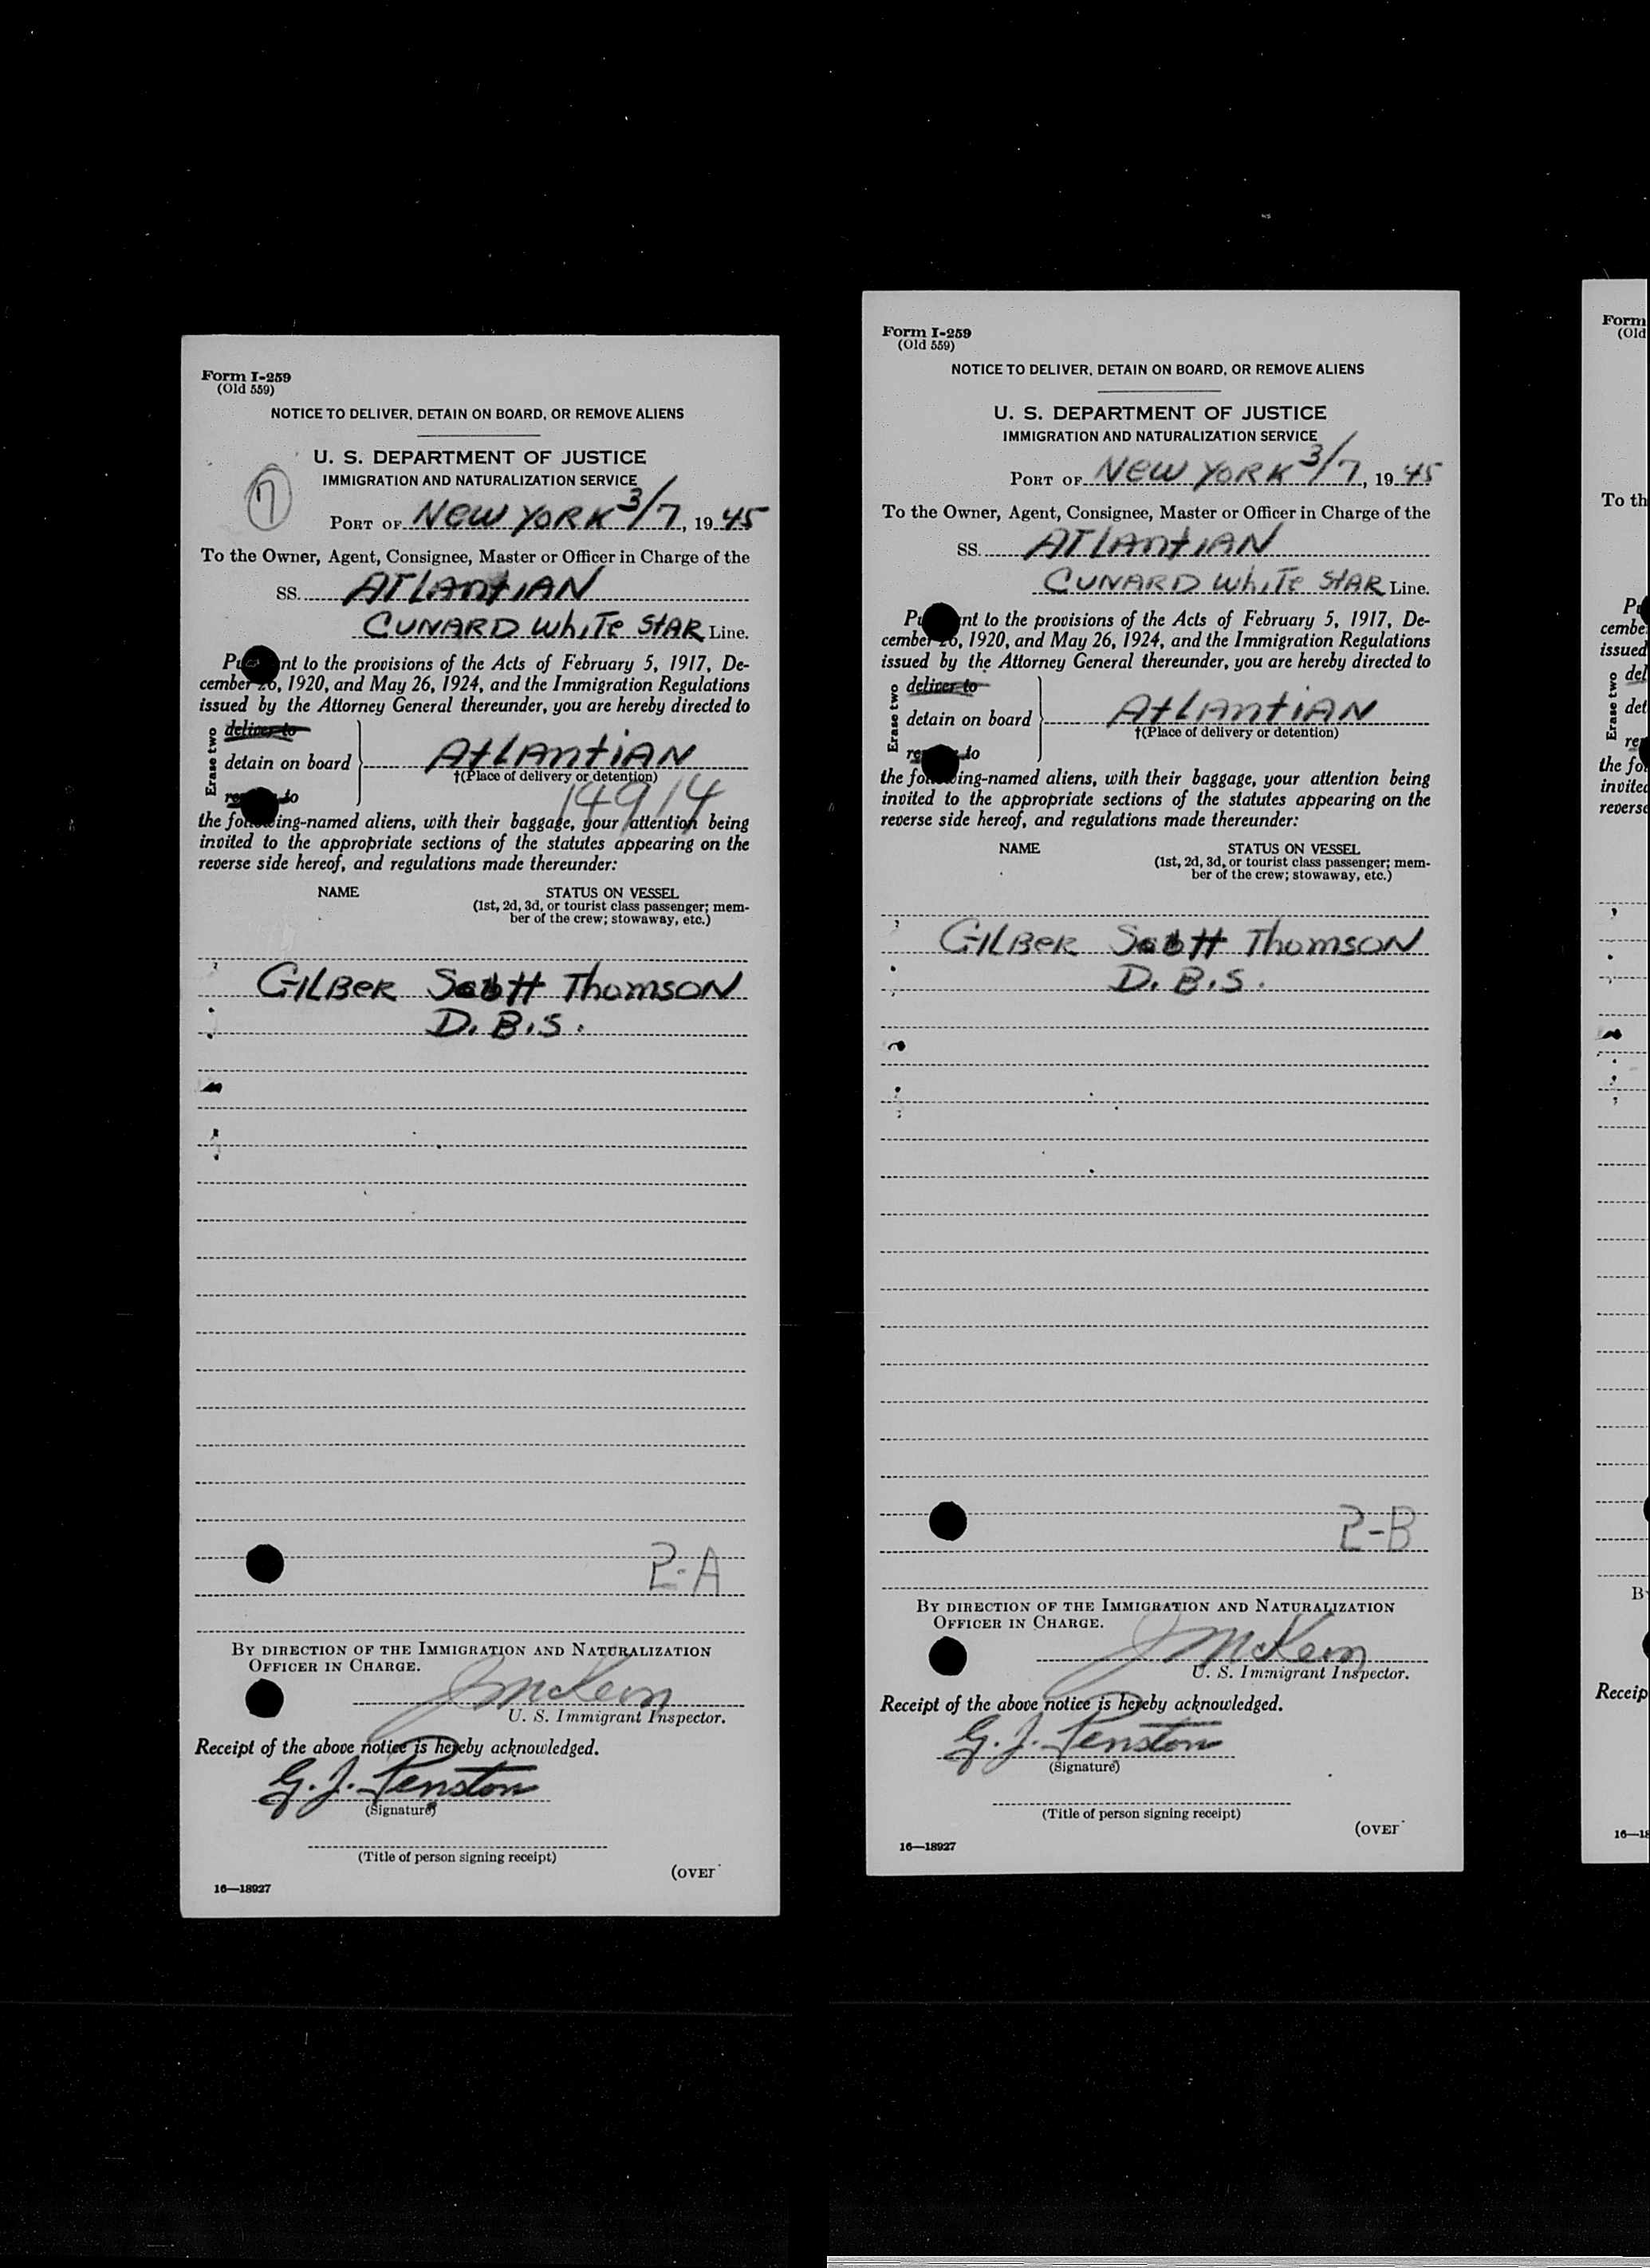 Form I-259
(Old 559)
NOTICE TO DELIVER, DETAIN ON BOARD, OR REMOVE ALIENS
U. S. DEPARTMENT OF JUSTICE
IMMIGRATION AND NATURALIZATION SERVICE
7
PORT OF NEW YORK 3/7, 1945
To the Owner, Agent, Consignee, Master or Officer in Charge of the
SS. ATLANTIAN
CUNARD WHITE STAR Line.
nt to the provisions of the Acts of February 5, 1917, De-
cember 26, 1920, and May 26, 1924, and the Immigration Regulations
issued by the Attorney General thereunder, you are hereby directed to
Erase two
deliver to
detain on board
ATLANTIAN
†(Place of delivery or detention)
to
14914
the following-named aliens, with their baggage, your attention being
invited to the appropriate sections of the statutes appearing on the
reverse side hereof, and regulations made thereunder:
NAME STATUS ON VESSEL
(1st, 2d, 3d, or tourist class passenger; mem-
ber of the crew; stowaway, etc.)
GILBER Scott Thomson
D.B.S.
2-A
BY DIRECTION OF THE IMMIGRATION AND NATURALIZATION
OFFICER IN CHARGE.
U. S. Immigrant Inspector.
Receipt of the above notice is hereby acknowledged.
G. J. Penston
(Signature)
(Title of person signing receipt)
(OVER
16—18927
Form I-259
(Old 559)
NOTICE TO DELIVER, DETAIN ON BOARD, OR REMOVE ALIENS
U. S. DEPARTMENT OF JUSTICE
IMMIGRATION AND NATURALIZATION SERVICE
PORT OF NEW YORK 3/7, 1945
To the Owner, Agent, Consignee, Master or Officer in Charge of the
SS. ATLANTIAN
CUNARD WHITE STAR Line.
nt to the provisions of the Acts of February 5, 1917, De-
cember 26, 1920, and May 26, 1924, and the Immigration Regulations
issued by the Attorney General thereunder, you are hereby directed to
Erase two
deliver to
detain on board
ATLANTIAN
†(Place of delivery or detention)
to
the following-named aliens, with their baggage, your attention being
invited to the appropriate sections of the statutes appearing on the
reverse side hereof, and regulations made thereunder:
NAME STATUS ON VESSEL
(1st, 2d, 3d, or tourist class passenger; mem-
ber of the crew; stowaway, etc.)
GILBER Scott Thomson
D.B.S.
2-B
BY DIRECTION OF THE IMMIGRATION AND NATURALIZATION
OFFICER IN CHARGE.
U. S. Immigrant Inspector.
Receipt of the above notice is hereby acknowledged.
G. J. Penston
(Signature)
(Title of person signing receipt)
(OVER
16—18927
Form
(Old
To th
cembe
issued
Erase two
del
det
the fo
invited
reverse
B
Receip
16—18